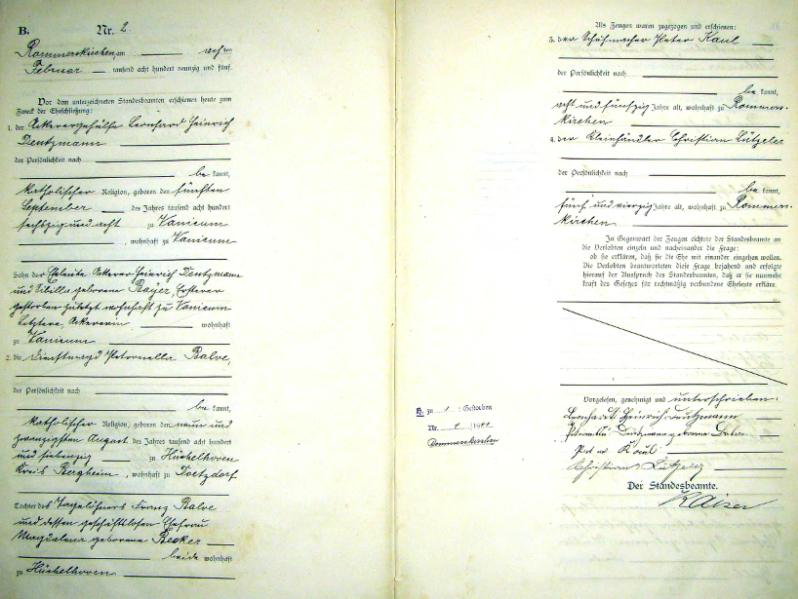 B. Nr. 2
Rommerskirchen, am zehn
Februar tausend acht hundert neunzig und fünf.
Vor dem unterzeichneten Standesbeamten erschienen heute zum
Zweck der Eheschließung:
1. der Ackerergehülfe Leonhard Heinrich
Deutzmann
der Persönlichkeit nach
be kannt,
katholischer Religion, geboren den fünften
September des Jahres tausend acht hundert
sechszig und acht zu Vanicum
, wohnhaft zu Vanicum
Sohn der Eheleute Ackerer Heinrich Deutzmann
und Sibilla geborene Bayer, Ersterer
gestorben zuletzt wohnhaft zu Vanicum
Letztere Ackererin wohnhaft
zu Vanicum
2. die Dienstmagd Petronella Balve,
der Persönlichkeit nach
be kannt,
katholischer Religion, geboren den neun und
zwanzigsten August des Jahres tausend acht hundert
und siebenzig zu Hüchelhoven
Kreis Bergheim, wohnhaft zu Doetzdorf
Tochter des Tagelöhners Franz Balve
und dessen geschäftslosen Ehefrau
Magdalena geborene Becker
beide wohnhaft
zu Hüchelhoven
Als Zeugen waren zugezogen und erschienen:
3. der Schuhmacher Peter Kaul
der Persönlichkeit nach
be kannt,
acht und fünfzig Jahre alt, wohnhaft zu Rommers-
kirchen.
4. der Kleinhändler Christian Lützeler
der Persönlichkeit nach
be kannt,
fünf und vierzig Jahre alt, wohnhaft zu Rommers-
kirchen.
In Gegenwart der Zeugen richtete der Standesbeamte an
die Verlobten einzeln und nacheinander die Frage:
ob sie erklären, daß sie die Ehe mit einander eingehen wollen.
Die Verlobten beantworteten diese Frage bejahend und erfolgte
hierauf der Ausspruch des Standesbeamten, daß er sie nunmehr
kraft des Gesetzes für rechtmäßig verbundene Eheleute erkläre.
Vorgelesen, genehmigt und unterschrieben.
Leonhard Heinrich Deutzmann
Deutzmann geborene Balve
Peter Kaul
Christian Lützeler
Der Standesbeamte.
Kaiser
zu 1 : Gestorben
Nr.
Rommerskirchen